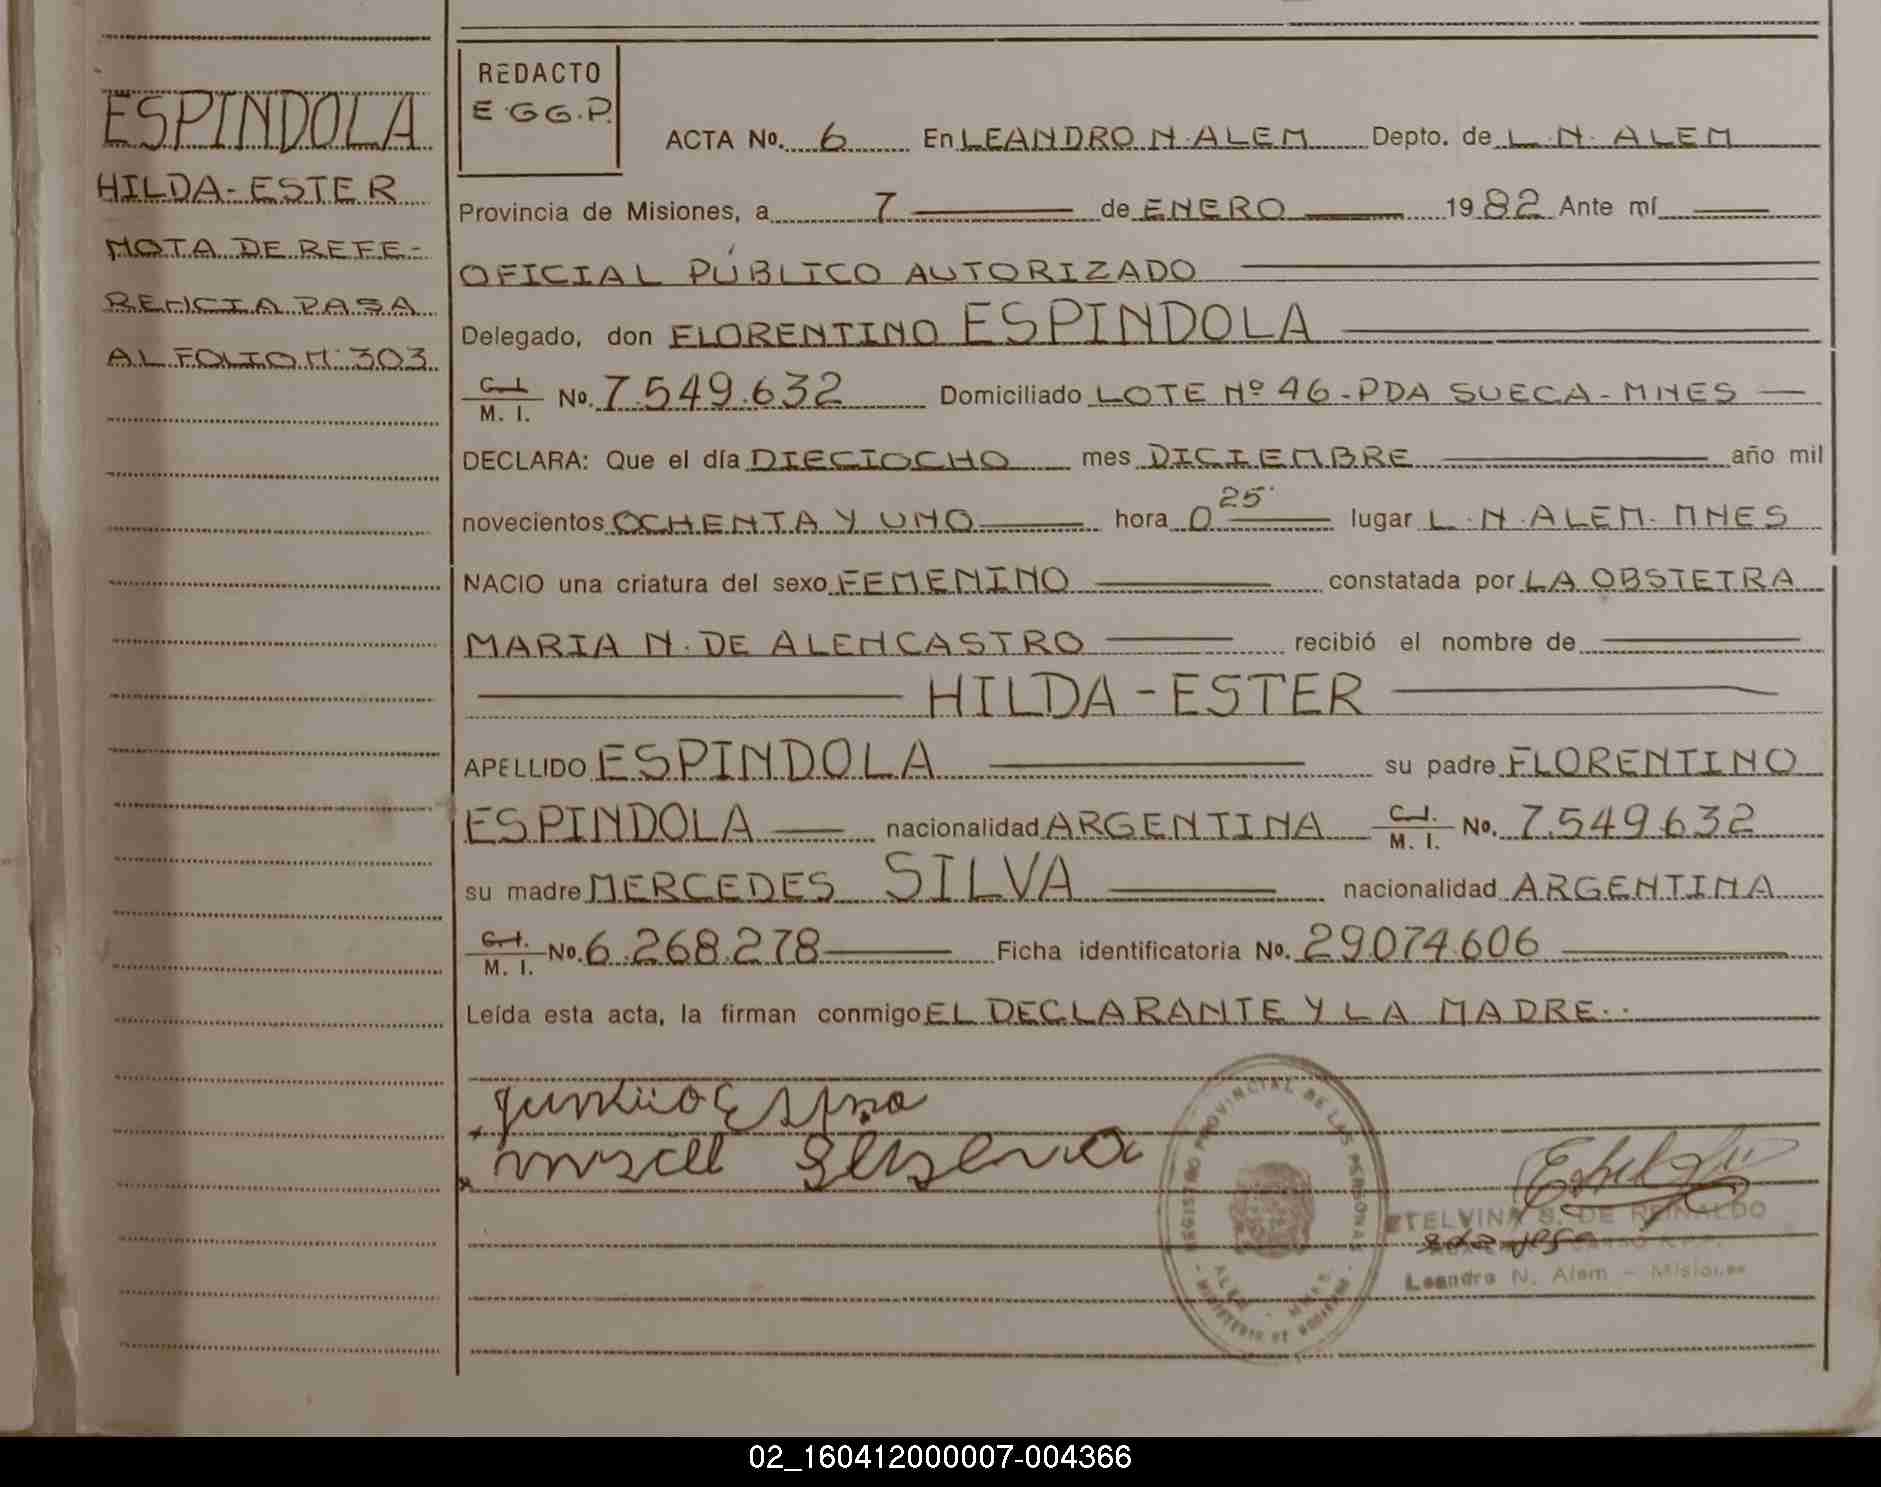 ESPINDOLA
HILDA-ESTER
NOTA DE REFE-
RENCIA PASA
AL FOLIO N· 303
REDACTO
E·GG.P.
ACTA No. 6 En LEANDRO N·ALEM Depto. de L·N·ALEM
Provincia de Misiones, a 7 de ENERO 1982 Ante mí
OFICIAL PÚBLICO AUTORIZADO
Delegado, don FLORENTINO ESPINDOLA
C. I. M. I. No. 7.549.632 Domiciliado LOTE Nº 46-PDA SUECA-MNES
DECLARA: Que el día DIECIOCHO mes DICIEMBRE año mil
novecientos OCHENTA Y UNO hora 0 25 lugar L·N·ALEM·MNES
NACIO una criatura del sexo FEMENINO constatada por LA OBSTETRA
MARIA N. DE ALENCASTRO recibió el nombre de
HILDA-ESTER
APELLIDO ESPINDOLA su padre FLORENTINO
ESPINDOLA nacionalidad ARGENTINA C. I. M. I. No. 7.549.632
su madre MERCEDES SILVA nacionalidad ARGENTINA
C. I. M. I. No. 6.268.278 Ficha identificatoria No. 29.074.606
Leída esta acta, la firman conmigo EL DECLARANTE Y LA MADRE··
REGISTRO PROVINCIAL DE LAS PERSONAS
ALEM - MNES
MINISTERIO DE GOBIERNO
ETELVINA S. DE REINALDO
Leandro N. Alem - Misiones
02_160412000007-004366